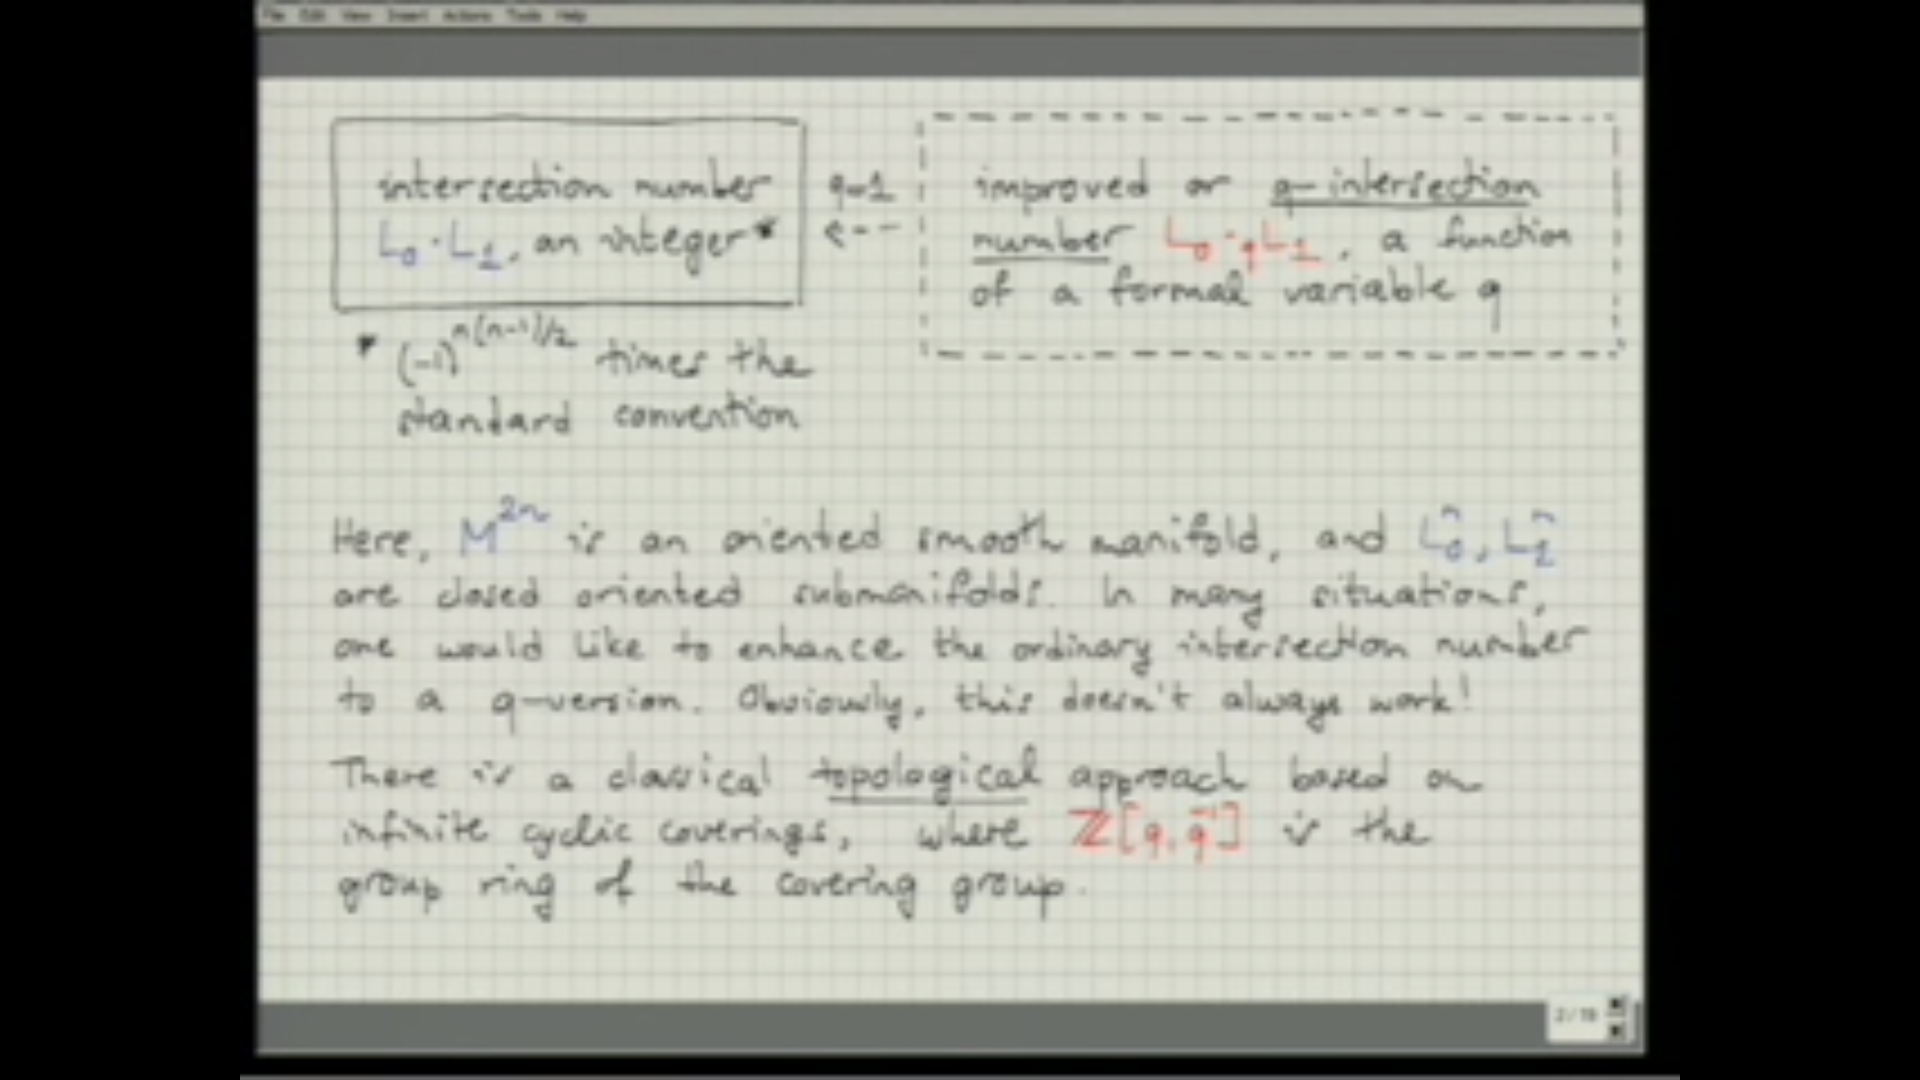 File Edit View Insert Actions Tools Help
intersection number
L₀ · L₁, an integer*
q=1
←--
improved or q-intersection
number L₀ ·q L₁, a function
of a formal variable q
* (-1)^{n(n-1)/2} times the
standard convention
Here, M²ⁿ is an oriented smooth manifold, and L₀ⁿ, L₁ⁿ
are closed oriented submanifolds. In many situations,
one would like to enhance the ordinary intersection number
to a q-version. Obviously, this doesn't always work!
There is a classical topological approach based on
infinite cyclic coverings, where ℤ[q, q⁻¹] is the
group ring of the covering group.